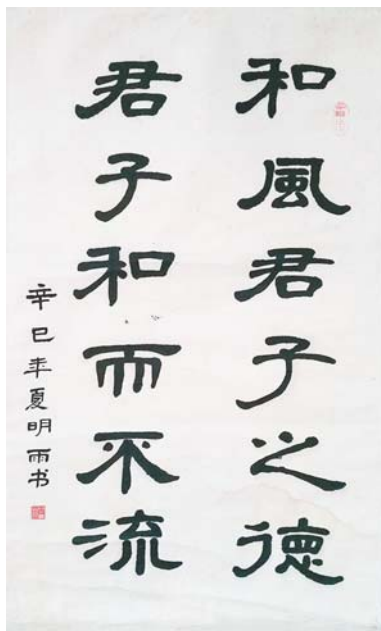 和風君子之德
君子和而不流
辛巳年夏明雨书